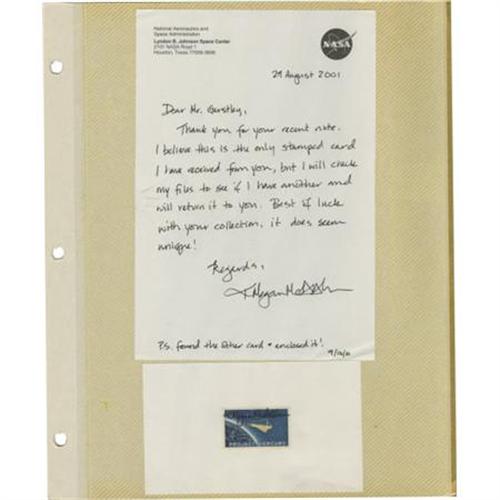 National Aeronautics and
Space Administration
Lyndon B. Johnson Space Center
2101 NASA Road 1
Houston, Texas 77058-3696
NASA
29 August 2001
Dear Mr. Gerstley,
Thank you for your recent note.
I believe this is the only stamped card
I have received from you, but I will check
my files to see if I have another and
will return it to you. Best of luck
with your collection, it does seem
unique!
Regards,
P.S. found the other card + enclosed it!
PROJECT MERCURY